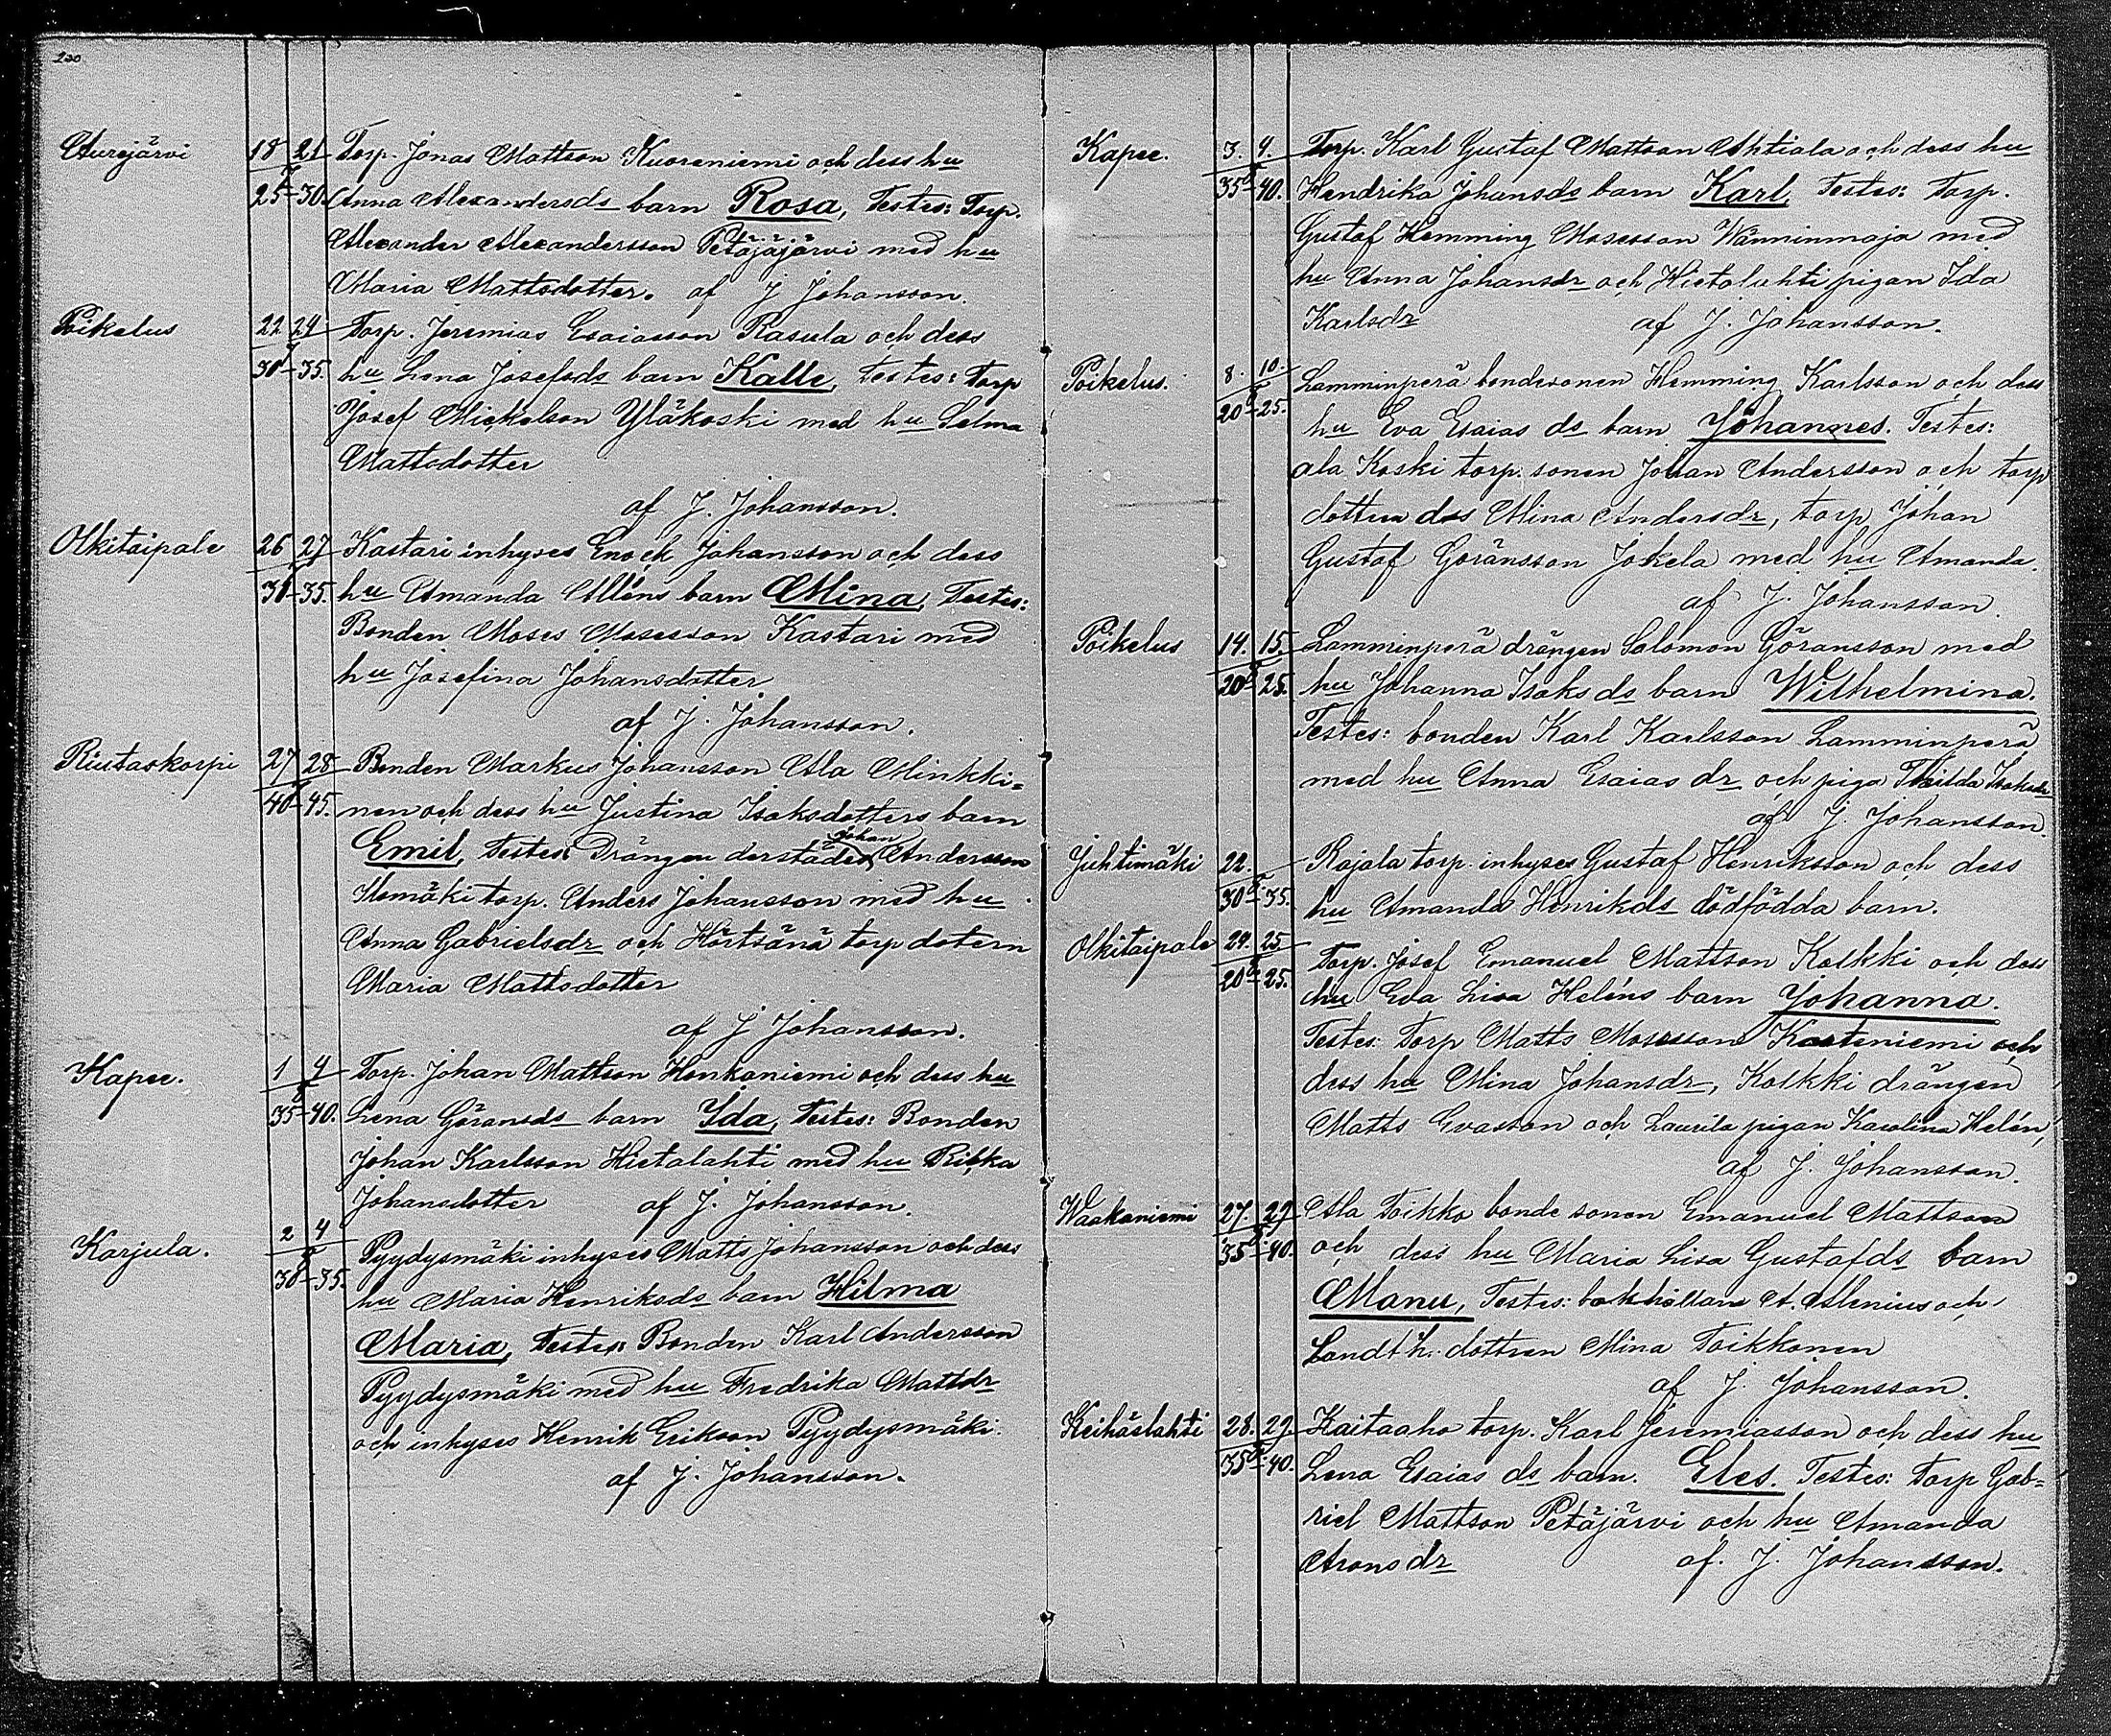 200
Aurejärvi 18 21 Torp. Jonas Mattson Kuoreniemi och dess hu
7
25-30. Anna Alexandersds barn Rosa, Testes: Torp.
Alexander Alexandersson Petäjäjärvi med hu
Maria Mattsdotter. af J Johansson.
Poikelus 22 24 Torp. Jeremias Esaiasson Rasula och dess
7
30-35. hu Lena Josefsds barn Kalle, Testes: Torp
Josef Mickelson Yläkoski med hu Selma
Mattsdotter
af J. Johansson.
Olkitaipale 26 27 Kastari inhyses Enock Johansson och dess
7
30-35. hu Amanda Alléns barn Mina, Testes:
Bonden Moses Mosesson Kastari med
hu Josefina Johansdotter
af J. Johansson.
Riutaskorpi 27 28 Bonden Markus Johansson Ala Minkki=
7
40-45. nen och dess hu Justina Isaksdotters barn
Johan
Emil, Testes: Drängen derstädes Andersson
torp. Anders Johansson med hu
Anna Gabrielsdr och Hörtsänä torp dotern
Maria Mattsdotter
af J Johansson.
Kapee. 1 4 Torp. Johan Mattson Honkaniemi och dess hu
8
35-40. Lena Göransds barn Ida, Testes: Bonden
Johan Karlsson Hietalahti med hu Ribka
Johansdotter af J. Johansson.
Karjula. 2 4 Pyydysmäki inhyses Matts Johansson och dess
8
30-35. hu Maria Henriksds barn Hilma
Maria, Testes: Bonden Karl Andersson
Pyydysmäki med hu Fredrika Mattsdr
och inhyses Henrik Erikson Pyydysmäki.
af J. Johansson.
Kapee. 3. 4. Torp. Karl Gustaf Mattson Ahtiala och dess hu
8
35-40. Hendrika Johansds barn Karl, Testes: Torp.
Gustaf Hemming Mosesson Wänninmaja med
hu Anna Johansdr och Hietalahti pigan Ida
Karlsdr af J. Johansson.
Poikelus. 8. 10. Lamminperä bondesonen Hemming Karlsson och dess
8
20-25. hu Eva Esaias ds barn Johannes. Testes:
ala Koski torp. sonen Johan Andersson och torp
dottren des Mina Andersdr, torp Johan
Gustaf Göransson Jokela med hu Amanda.
af J. Johansson.
Poikelus 14. 15. Lamminperä drängen Salomon Göransson med
8
20-25. hu Johanna Isaks ds barn Wilhelmina.
Testes: bonden Karl Karlsson Lamminperä
med hu Anna Esaias dr och piga Thilda Isaksdr
af J. Johansson.
Juhtimäki 22. Rajala torp. inhyses Gustaf Henriksson och dess
8
30-35. hu Amanda Henrikds dödfödda barn.
Olkitaipale 24. 25 Torp. Josef Emanuel Mattson Kolkki och dess
8
20-25. hu Eva Lisa Heléns barn Johanna.
Testes: Torp Matts Mosesson Kasteniemi och
dess hu Mina Johansdr, Kolkki drängen
Matts Evasson och Laurila pigan Karolina Helén,
af J. Johansson.
Waakaniemi 27. 29 Ala Toikko bonde sonen Emanuel Mattson
8
35-40. och dess hu Maria Lisa Gustafds barn
Manu, Testes: bokhållare A. Alenius och
Landth. dottren Mina Toikkonen
af J. Johansson.
Keihäslahti 28. 29. Kaitaaho torp. Karl Jeremiasson och dess hu
8
35-40. Lena Esaias ds barn. Eles. Testes: Torp Gab=
riel Mattson Petäjärvi och hu Amanda
Arons dr af. J. Johansson.